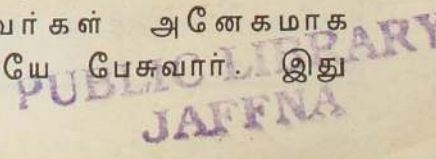 வர்கள் அநேகமாக
யே பேசுவார். இது
PUBLIC LIBRARY
JAFFNA